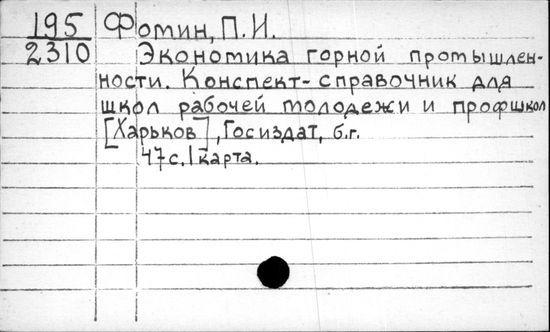 195 Фомин, П. И.
2310 Экономика горной промышлен-
ности. Конспект-справочник для
школ рабочей молодежи и профшкол
[Харьков], Госиздат, б.г.
47с. 1 карта.